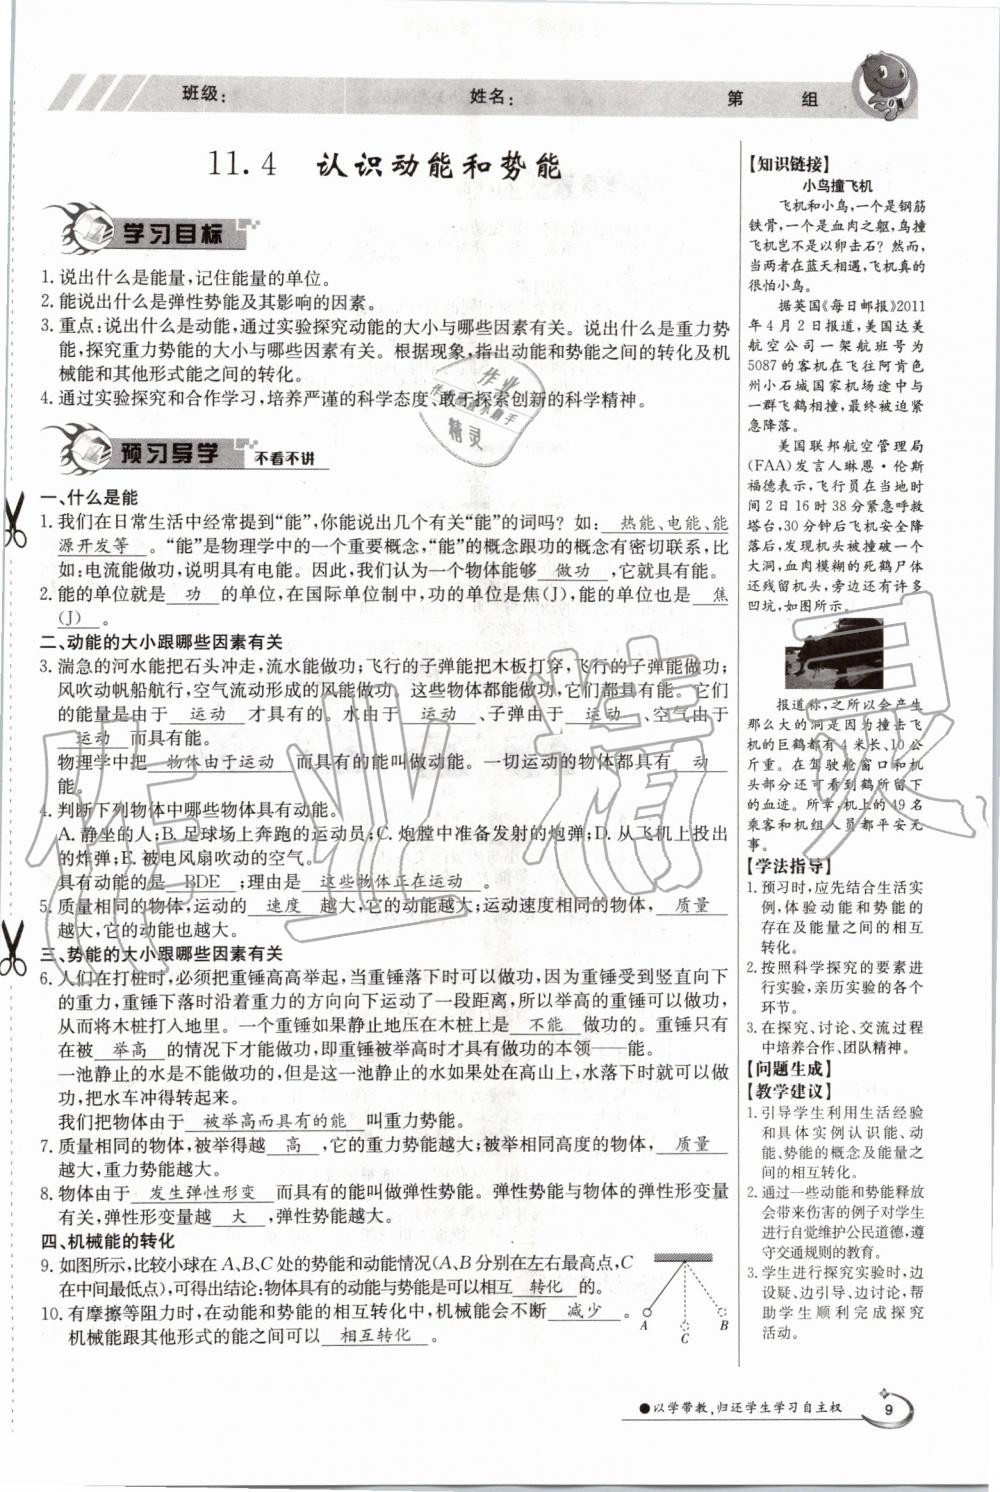 班级:
姓名:
第 组
11.4 认识动能和势能
学习目标
1. 说出什么是能量,记住能量的单位。
2. 能说出什么是弹性势能及其影响的因素。
3. 重点:说出什么是动能,通过实验探究动能的大小与哪些因素有关。说出什么是重力势
能,探究重力势能的大小与哪些因素有关。根据现象,指出动能和势能之间的转化及机
械能和其他形式能之间的转化。
4. 通过实验探究和合作学习,培养严谨的科学态度、敢于探索创新的科学精神。
预习导学 不看不讲
一、什么是能
1. 我们在日常生活中经常提到“能”,你能说出几个有关“能”的词吗? 如: 热能、电能、能
源开发等 。“能”是物理学中的一个重要概念,“能”的概念跟功的概念有密切联系,比
如:电流能做功,说明具有电能。因此,我们认为一个物体能够 做功 ,它就具有能。
2. 能的单位就是 功 的单位,在国际单位制中,功的单位是焦(J),能的单位也是 焦
(J) 。
二、动能的大小跟哪些因素有关
3. 湍急的河水能把石头冲走,流水能做功;飞行的子弹能把木板打穿,飞行的子弹能做功;
风吹动帆船航行,空气流动形成的风能做功。这些物体都能做功,它们都具有能。它们
的能量是由于 运动 才具有的。水由于 运动 、子弹由于 运动 、空气由于
运动 而具有能。
物理学中把 物体由于运动 而具有的能叫做动能。一切运动的物体都具有 动
能。
4. 判断下列物体中哪些物体具有动能。
A. 静坐的人;B. 足球场上奔跑的运动员;C. 炮膛中准备发射的炮弹;D. 从飞机上投出
的炸弹;E. 被电风扇吹动的空气。
具有动能的是 BDE ;理由是 这些物体正在运动 。
5. 质量相同的物体,运动的 速度 越大,它的动能越大;运动速度相同的物体, 质量
越大,它的动能也越大。
三、势能的大小跟哪些因素有关
6. 人们在打桩时,必须把重锤高高举起,当重锤落下时可以做功,因为重锤受到竖直向下
的重力,重锤下落时沿着重力的方向向下运动了一段距离,所以举高的重锤可以做功,
从而将木桩打入地里。一个重锤如果静止地压在木桩上是 不能 做功的。重锤只有
在被 举高 的情况下才能做功,即重锤被举高时才具有做功的本领——能。
一池静止的水是不能做功的,但是这一池静止的水如果处在高山上,水落下时就可以做
功,把水车冲得转起来。
我们把物体由于 被举高而具有的能 叫重力势能。
7. 质量相同的物体,被举得越 高 ,它的重力势能越大;被举相同高度的物体, 质量
越大,重力势能越大。
8. 物体由于 发生弹性形变 而具有的能叫做弹性势能。弹性势能与物体的弹性形变量
有关,弹性形变量越 大 ,弹性势能越大。
四、机械能的转化
9. 如图所示,比较小球在A、B、C处的势能和动能情况(A、B分别在左右最高点,C
在中间最低点),可得出结论:物体具有的动能与势能是可以相互 转化 的。
10. 有摩擦等阻力时,在动能和势能的相互转化中,机械能会不断 减少 。
机械能跟其他形式的能之间可以 相互转化 。
A
C
B
【知识链接】
小鸟撞飞机
飞机和小鸟,一个是钢筋
铁骨,一个是血肉之躯,鸟撞
飞机岂不是以卵击石? 然而,
当两者在蓝天相遇,飞机真的
很怕小鸟。
据英国《每日邮报》2011
年4月2日报道,美国达美
航空公司一架航班号为
5087的客机在飞往阿肯色
州小石城国家机场途中与
一群飞鹤相撞,最终被迫紧
急降落。
美国联邦航空管理局
(FAA)发言人琳恩·伦斯
福德表示,飞行员在当地时
间2日16时38分紧急呼救
塔台,30分钟后飞机安全降
落后,发现机头上有一个
大洞,血肉模糊的死鹤尸体
还残留机头,旁边还有许多
凹坑,如图所示。
报道称,之所以会产生
那么大的洞是因为撞击飞
机的巨鹤都有4米长、10公
斤重。在驾驶舱窗口和机
头部分还可看到鹤所留下
的血迹。所幸,机上的49名
乘客和机组人员都平安无
事。
【学法指导】
1. 预习时,应先结合生活实
例,体验动能和势能的
存在及能量之间的相互
转化。
2. 按照科学探究的要素进
行实验,亲历实验的各个
环节。
3. 在探究、讨论、交流过程
中培养合作、团队精神。
【问题生成】
【教学建议】
1. 引导学生利用生活经验
和具体实例认识能、动
能、势能的概念及能量之
间的相互转化。
2. 通过一些动能和势能释放
会带来伤害的例子对学生
进行自觉维护公民道德,遵
守交通规则的教育。
3. 学生进行探究实验时,边
设疑、边引导、边讨论,帮
助学生顺利完成探究
活动。
●以学带教,归还学生学习自主权
9
作业精灵